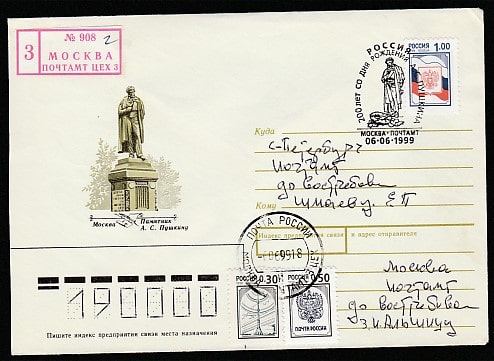 № 908 2
З МОСКВА
ПОЧТАМТ ЦЕХ 3
РОССИЯ
200 ЛЕТ СО ДНЯ РОЖДЕНИЯ А.С. ПУШКИНА
МОСКВА-ПОЧТАМТ
06-06-1999
РОССИЯ 1.00
Москва Памятник
А. С. Пушкину
Куда
С-Петербург
почтамт
до востребован
Кому
Е П
Индекс предприятия связи и адрес отправителя
ПОЧТА РОССИИ
МОСКВА
РОССИЯ 0.30
РОССИЯ 0.50
Москва
почтамт
до востребован
190000
Пишите индекс предприятия связи места назначения